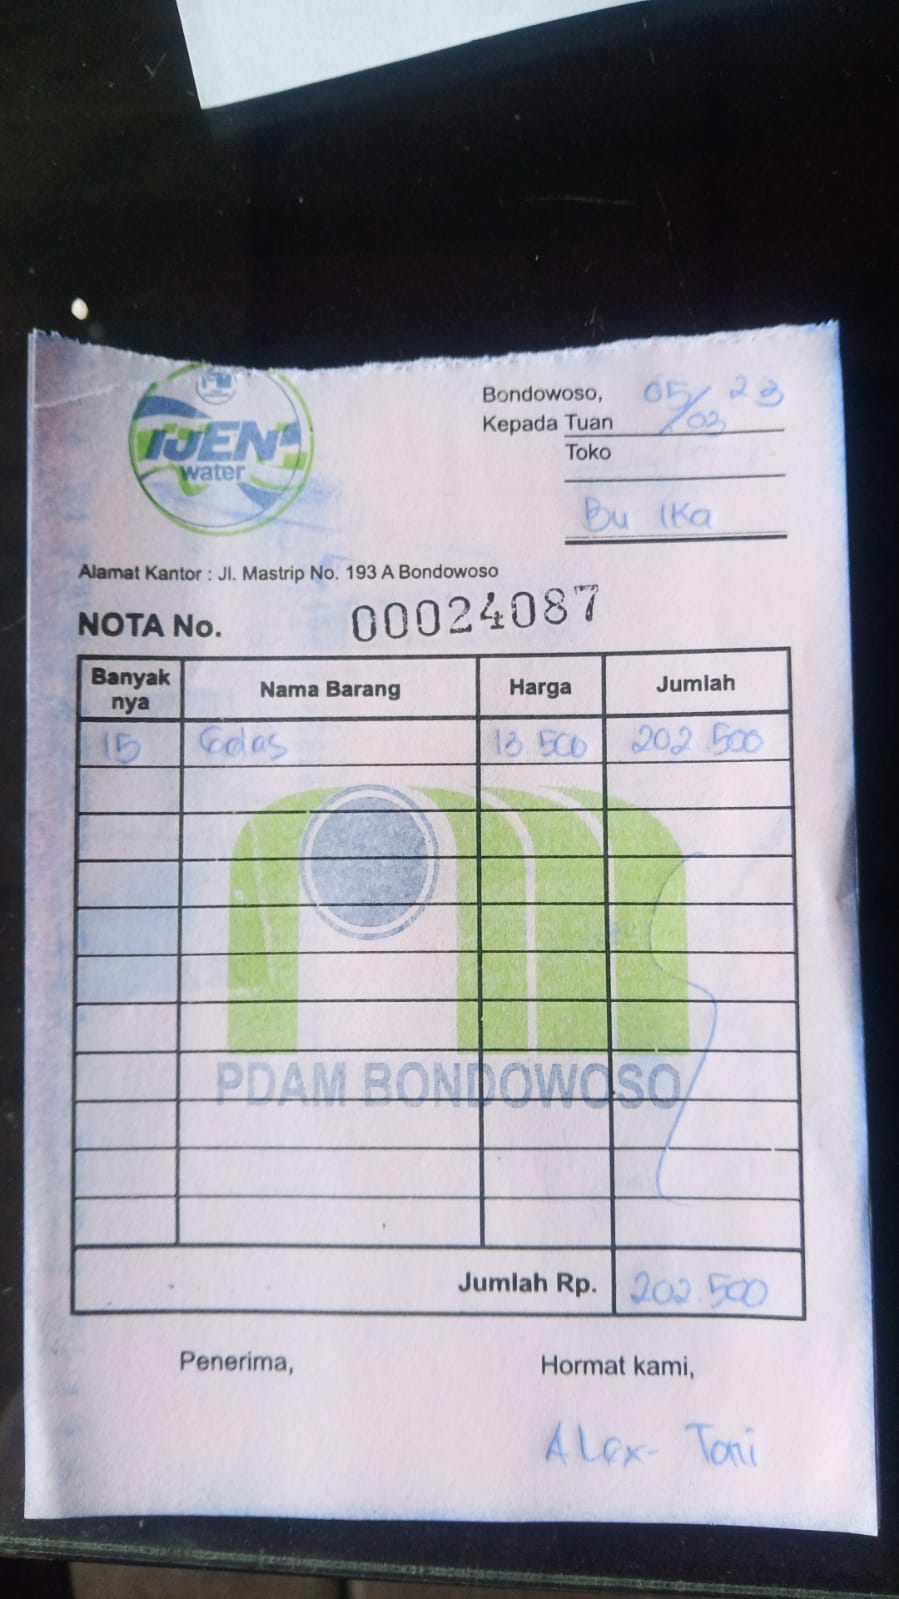 IJEN
water
Bondowoso, 05/03 23
Kepada Tuan
Toko
Bu Ika
Alamat Kantor : Jl. Mastrip No. 193 A Bondowoso
NOTA No. 00024087
Banyak nya Nama Barang Harga Jumlah
15 Gelas 13 500 202.500
PDAM BONDOWOSO
Jumlah Rp. 202.500
Penerima, Hormat kami,
Alex- Toni